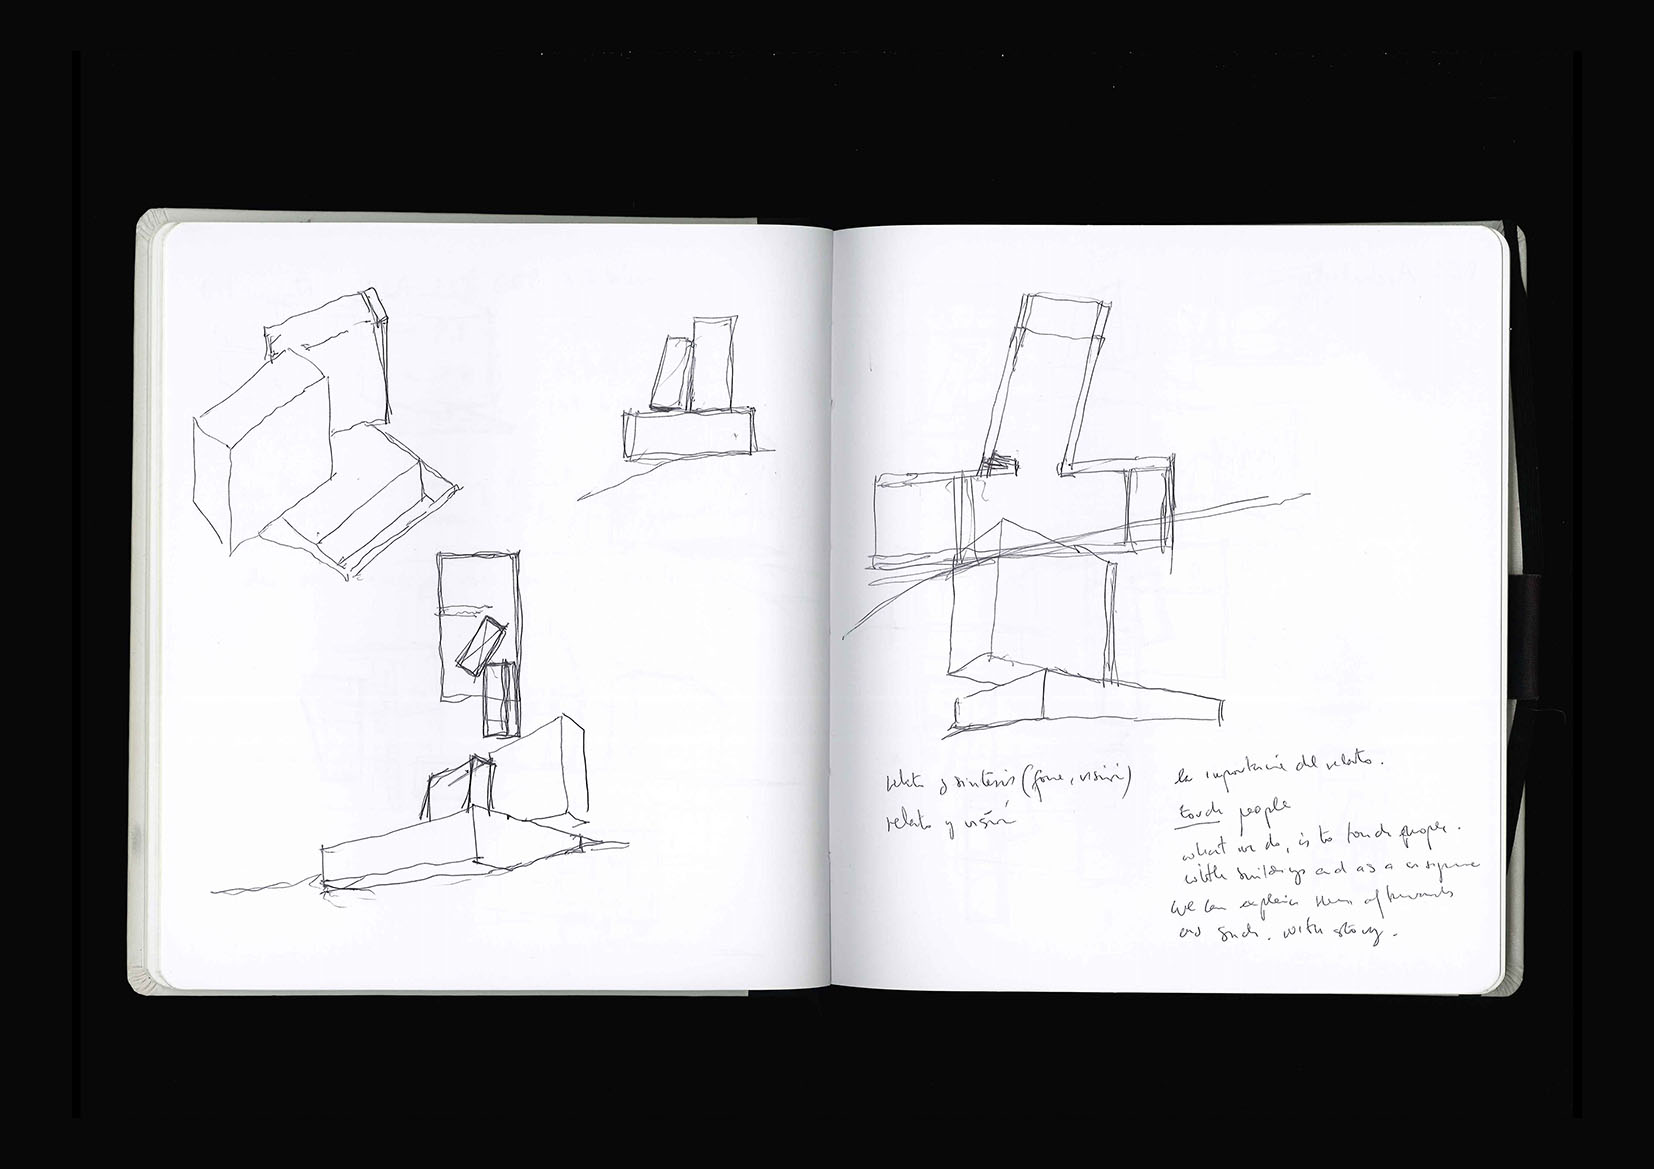 relato y síntesis (forma, visión)
relato y visión
la importancia del relato.
touch people
what we do, is to touch people.
with buildings and as a consequence
we can explain them afterwards
as such. with story.